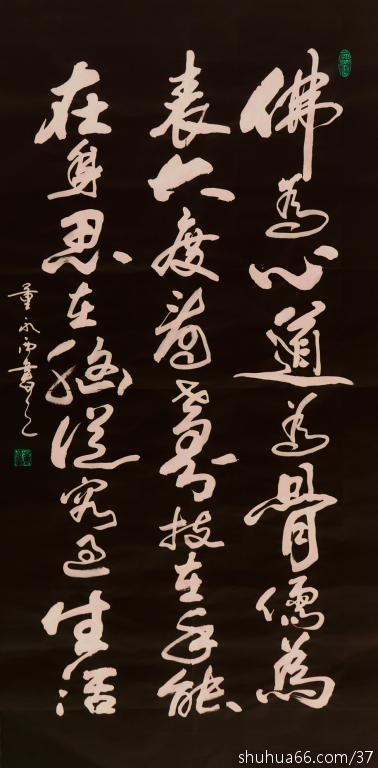 佛為心道為骨儒為
表大度看世界技在手能
在身思在腦從容過生活
shuhua66.com/37